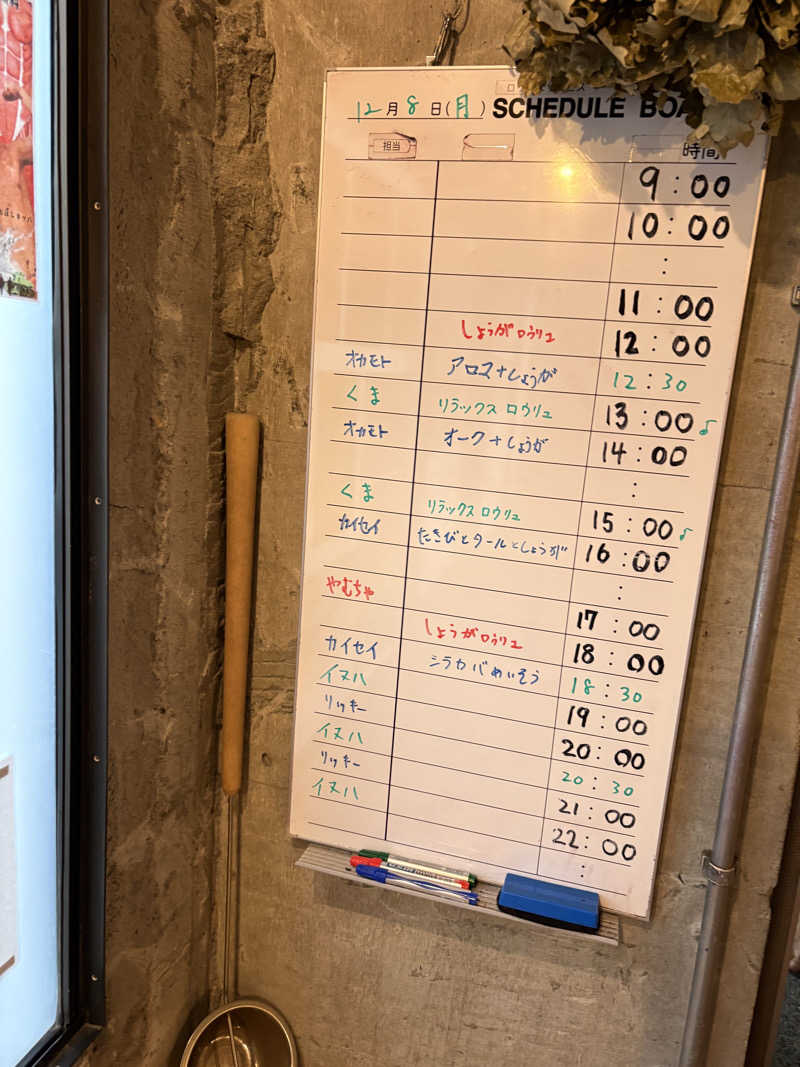 12月8日(月) SCHEDULE BOA
担当 時間
9:00
10:00
:
11:00
しょうがロウリュ 12:00
オカモト アロマ+しょうが 12:30
くま リラックスロウリュ 13:00♪
オカモト オーク+しょうが 14:00
:
くま リラックスロウリュ 15:00♪
カイセイ たきびとタールとしょうが 16:00
:
やむちゃ 17:00
しょうがロウリュ 18:00
カイセイ シラカバめいそう 18:30
イヌハ 19:00
リッキー 20:00
イヌハ 20:30
リッキー 21:00
イヌハ 22:00
: